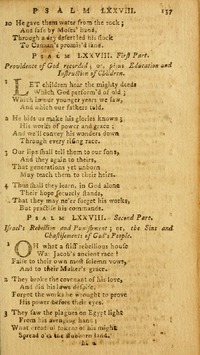 PSALM LXXVIII. 157
10 He gave them water from the rock;
And safe by Moses' hand,
Through a dry desert led his flock
To Canaan's promis'd land.
PSALM LXXVIII. First Part.
Providence of God recorded; or, pious Education and
Instruction of Children.
1 LET children hear the mighty deeds
Which God perform'd of old;
Which in our younger years we saw,
And which our fathers told.
2 He bids us make his glories known;
His works of power and grace:
And we'll convey his wonders down
Through every rising race.
3 Our lips shall tell them to our sons,
And they again to theirs,
That generations yet unborn
May teach them to their heirs.
4 Thus shall they learn, in God alone
Their hope securely stands,
That they may ne'er forget his works,
But practise his commands.
PSALM LXXVIII. Second Part.
Israel's Rebellion and Punishment; or, the Sins and
Chastisements of God's People.
1 OH what a stiff rebellious house
Was Jacob's ancient race!
False to their own most solemn vows,
And to their Maker's grace.
2 They broke the covenant of his love,
And did his laws despise,
Forgot the works he wrought to prove
His power before their eyes.
3 They saw the plagues on Egypt light
From his avenging hand;
What dreadful tokens of his might
Spread o'er the stubborn land.